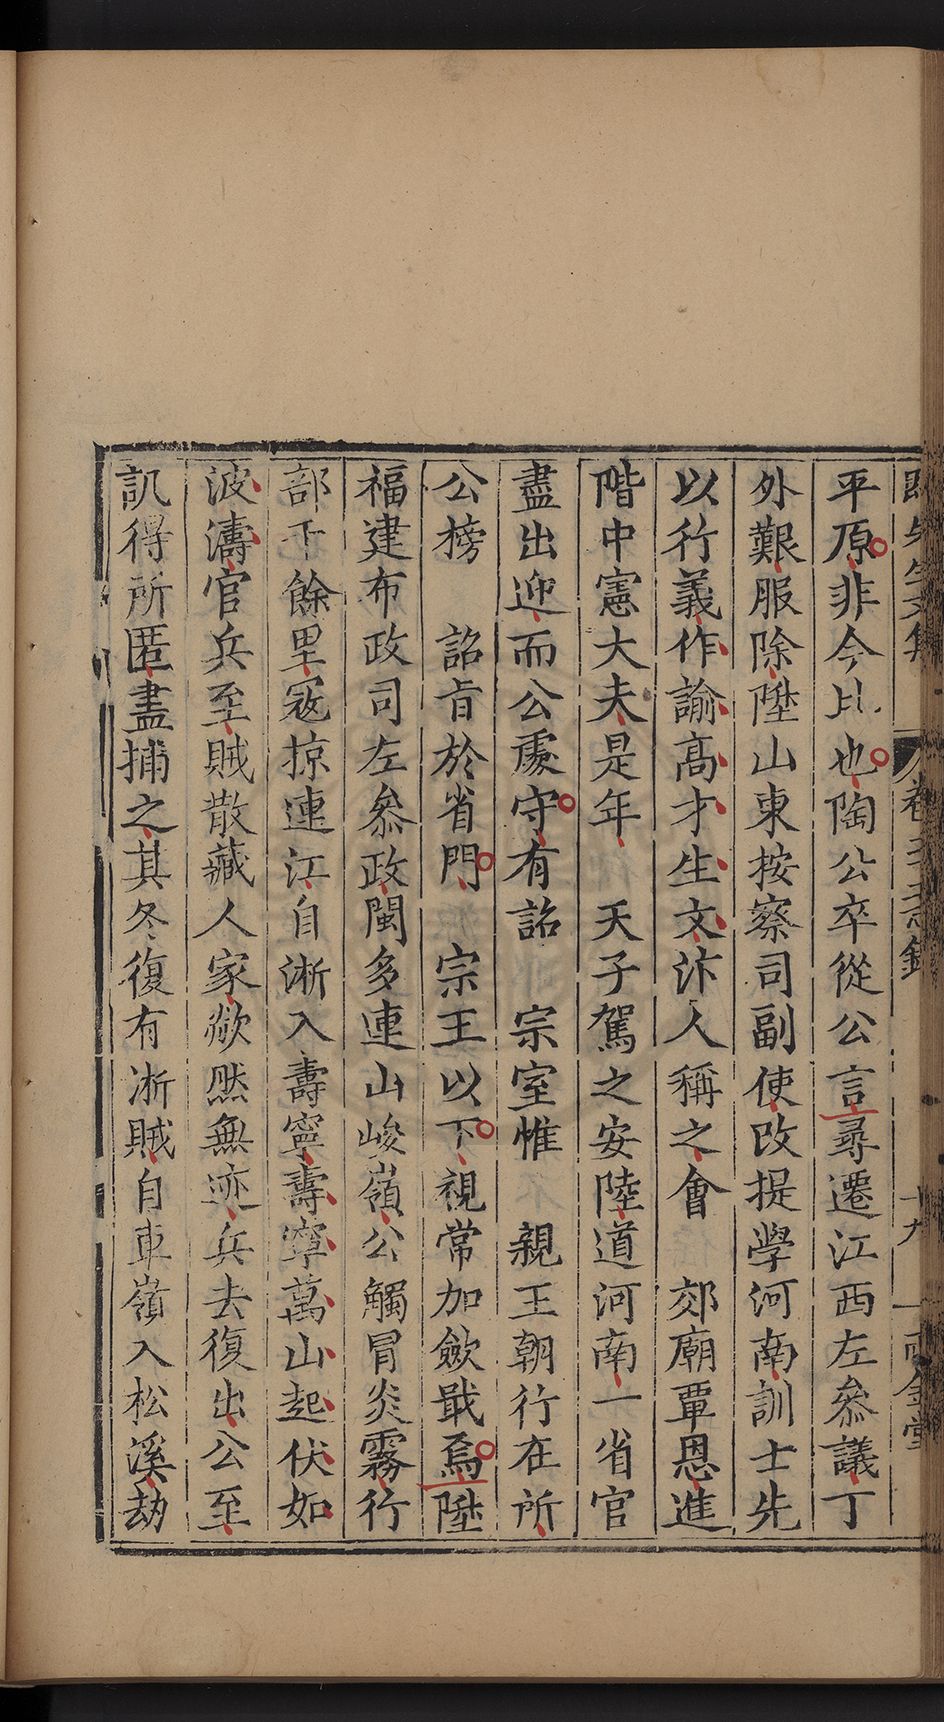 平原非今比也陶公卒從公言尋遷江西左叅議丁
外艱服除陞山東按察司副使改提學河南訓士先
以行義作諭高才生文汴人稱之會　郊廟覃恩進
階中憲大夫是年　天子駕之安陸道河南一省官
盡出迎而公處守有詔　宗室惟　親王朝行在所
公榜　詔旨於省門　宗王以下視常加歛戢焉陞
福建布政司左叅政閩多連山峻嶺公觸冒炎霧行
部千餘里寇掠連江自淅入壽寧壽寧萬山起伏如
波濤官兵至賊散藏人家欻然無迹兵去復出公至
訊得所匿盡捕之其冬復有淅賊自車嶺入松溪劫